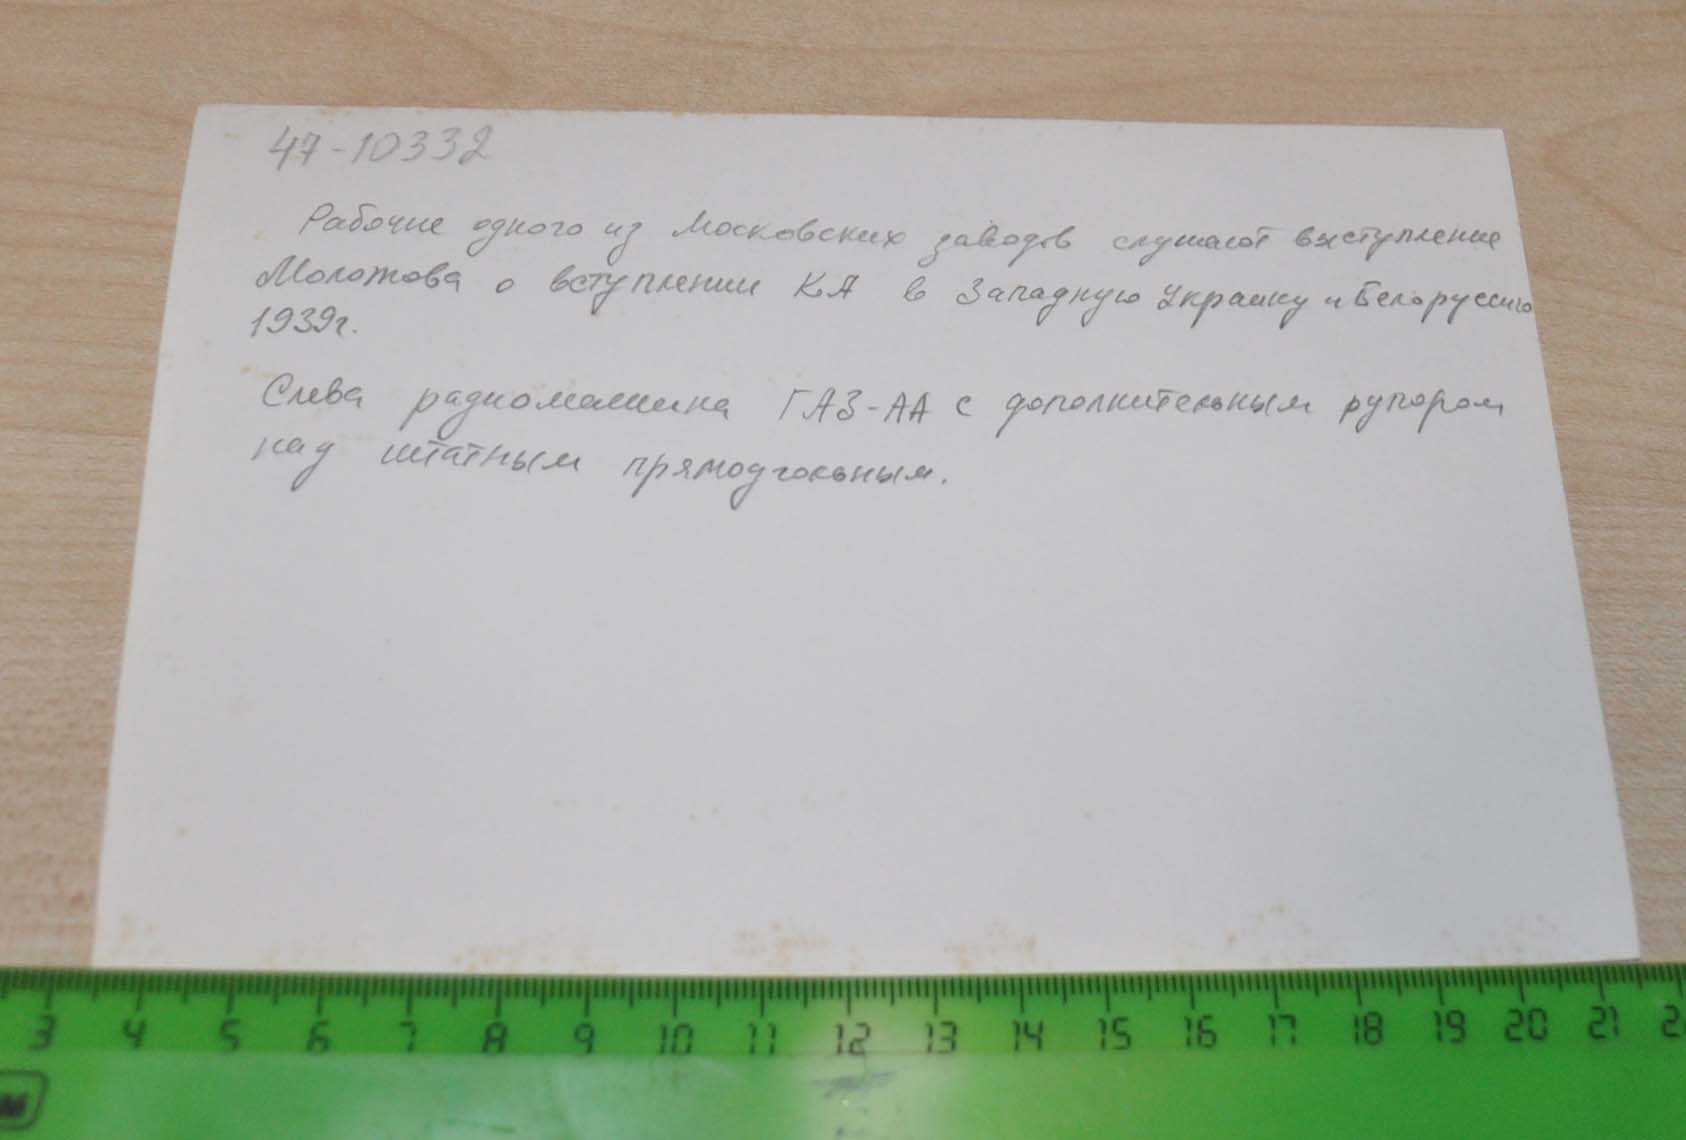 47-10332
Рабочие одного из Московских заводов слушают выступление
Молотова о вступлении КА в Западную Украину и Белоруссию
1939г.
Слева радиомашина ГАЗ-АА с дополнительным рупором
над штатным прямоугольным.
3 4 5 6 7 8 9 10 11 12 13 14 15 16 17 18 19 20 21